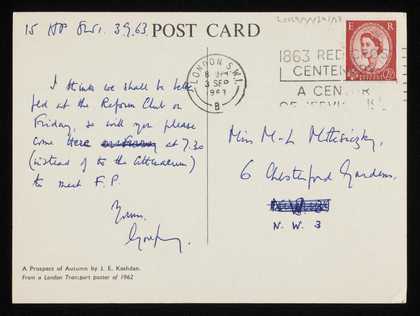 15 HP SW1. 3.9.63
POST CARD
I think we shall be better
fed at the Reform Club on
Friday, so will you please
come here on Friday at 7.30
(instead of to the Athenaeum)
to meet F.P.
Yours,
A Prospect of Autumn by J. E. Kashdan.
From a London Transport poster of 1962
LONDON S.W.1.
3 SEP
1963
B
1863 RED CROSS
CENTENARY
A CENTURY
OF SERVICE 1963
E R
2½
Miss M-L
6 Chesterford Gardens.
N.W.3
N. W. 3